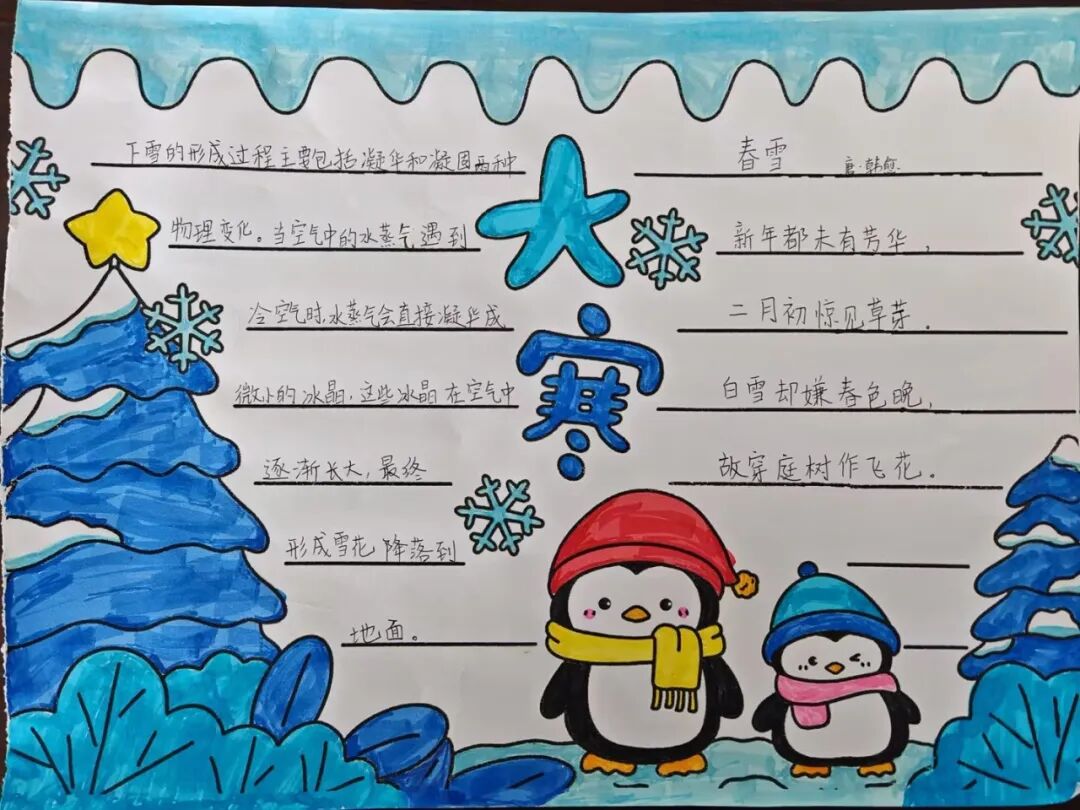 下雪的形成过程主要包括凝华和凝固两种
物理变化。当空气中的水蒸气遇到
冷空气时,水蒸气会直接凝华成
微小的冰晶,这些冰晶在空气中
逐渐长大,最终
形成雪花降落到
地面。
大寒
春雪
唐·韩愈
新年都未有芳华,
二月初惊见草芽.
白雪却嫌春色晚,
故穿庭树作飞花。